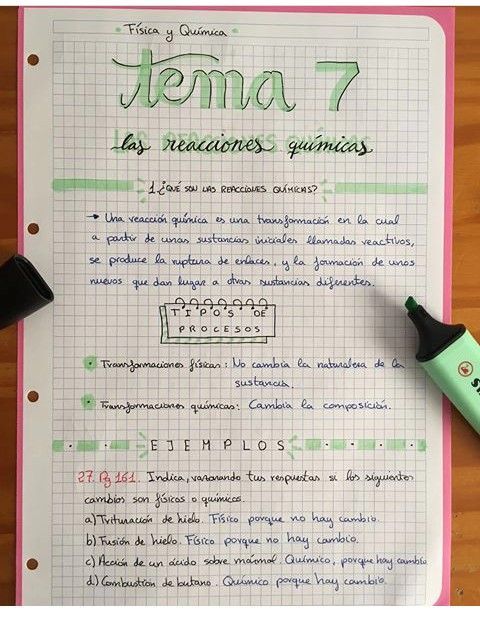 Física y Química
tema 7
las reacciones químicas
1. ¿QUÉ SON LAS REACCIONES QUÍMICAS?
→ Una reacción química es una transformación en la cual
a partir de unas sustancias iniciales llamadas reactivos,
se produce la ruptura de enlaces, y la formación de unos
nuevos que dan lugar a otras sustancias diferentes.
TIPOS DE
PROCESOS
Transformaciones físicas: No cambia la naturaleza de la
sustancia.
Transformaciones químicas: Cambia la composición.
EJEMPLOS
27. Pg 161. Indica, razonando tus respuestas si los siguientes
cambios son físicos o químicos.
a) Trituración de hielo. Físico porque no hay cambio.
b) Fusión de hielo. Físico porque no hay cambio.
c) Acción de un ácido sobre mármol. Químico, porque hay cambio
d) Combustión de butano. Químico porque hay cambio.